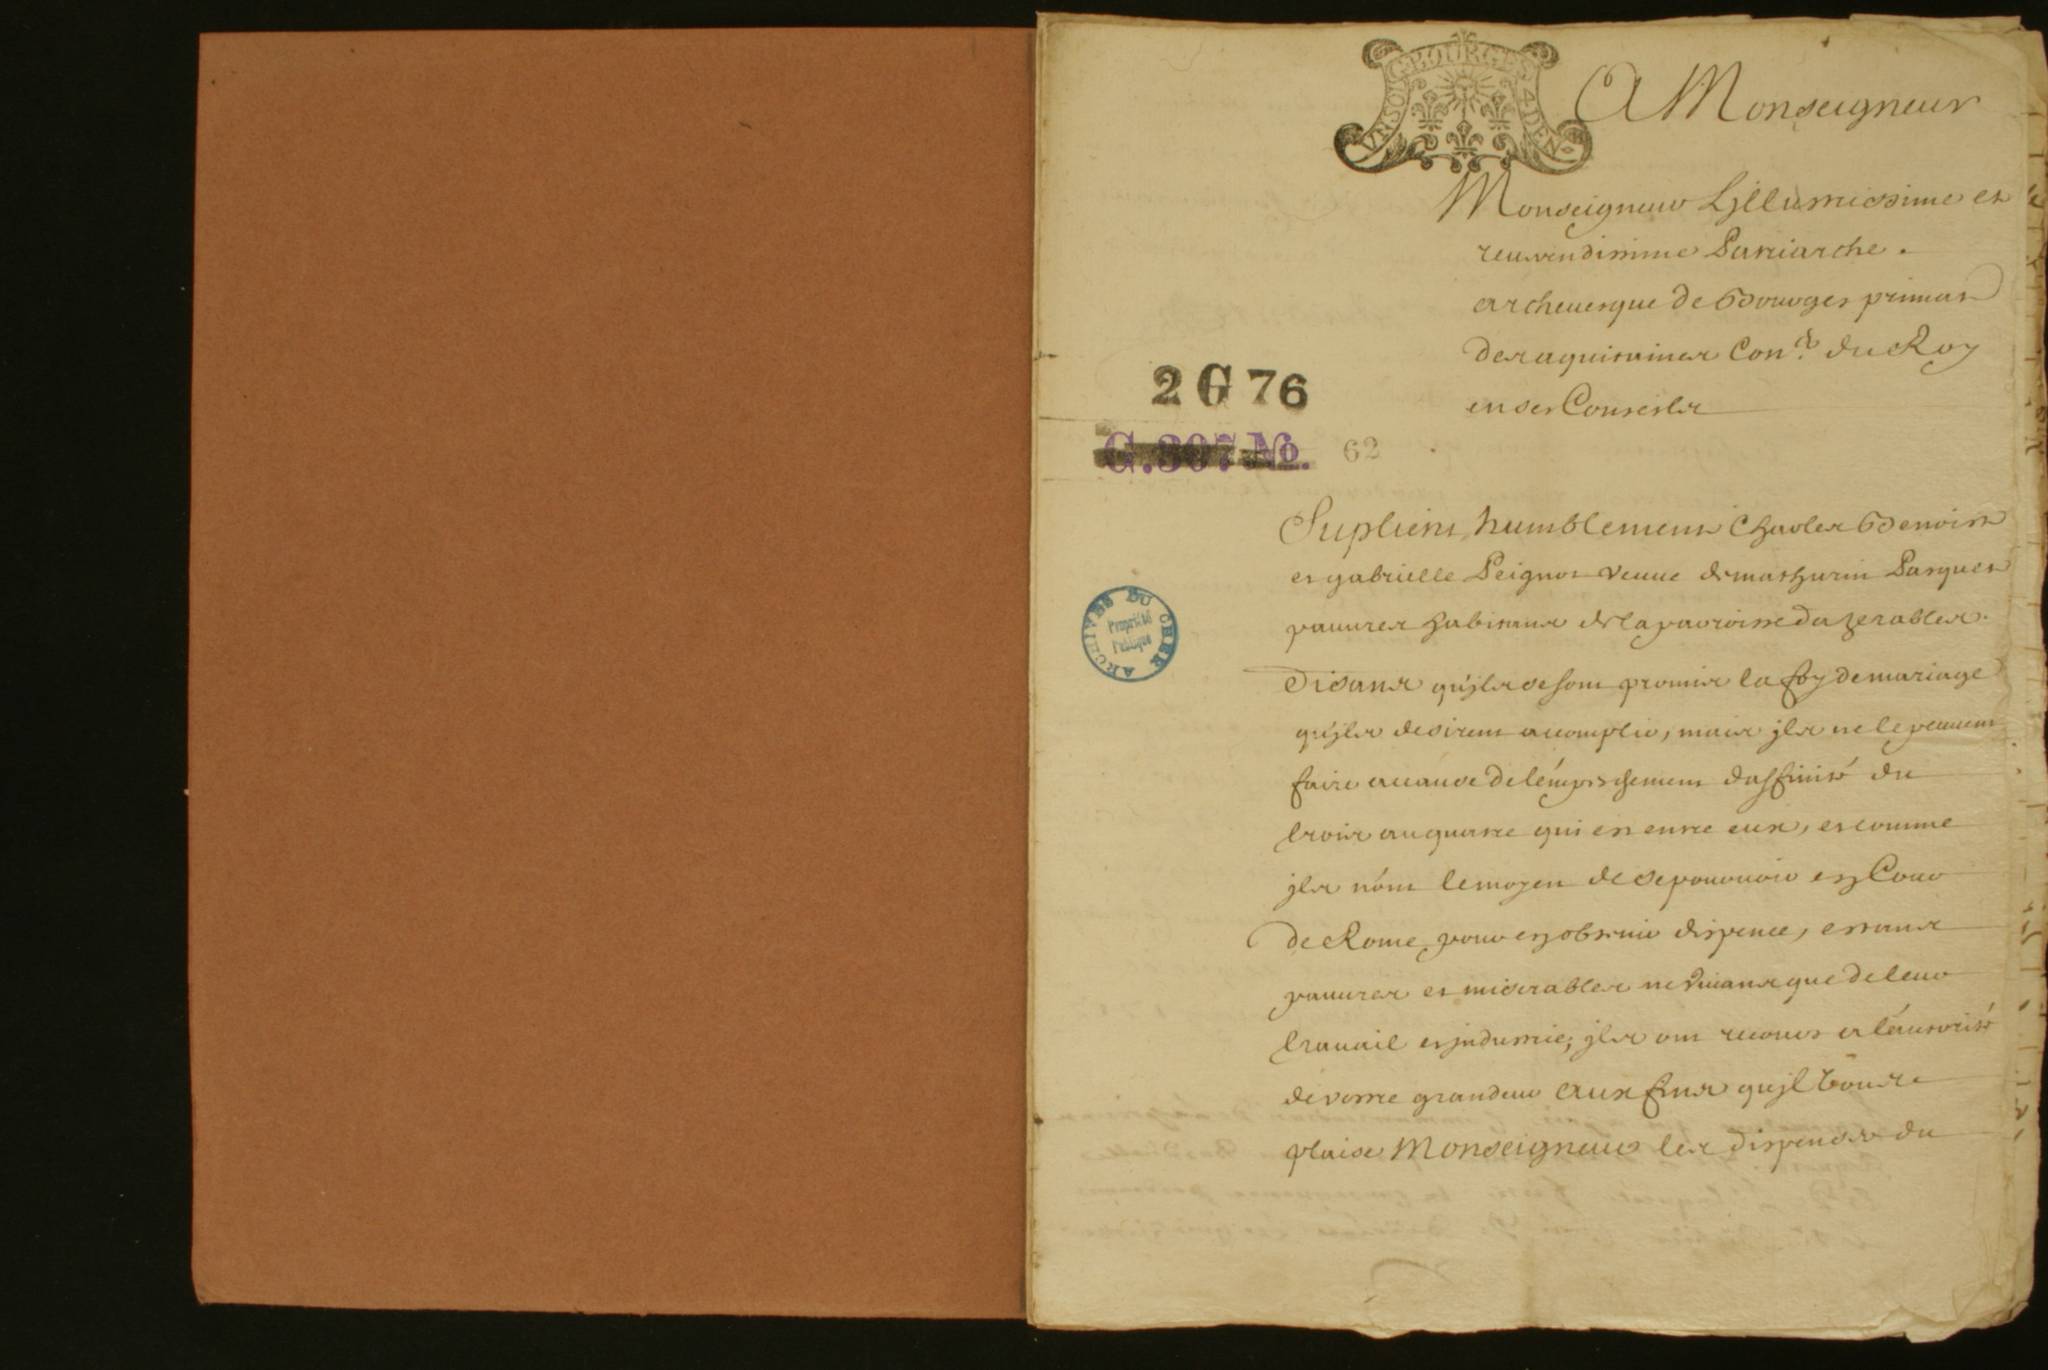 G. BOURGES
VN SOL
4. DEN.
A Monseigneur
Monseigneur L'jllustrissime et
reverendissime Patriarche.
archevesque de Bourges primat
des aquitaines Con.er du Roy
en ses Conseils
2 G 76
G. 307 No. 62
Suplient humblement Charles Benoist
et gabrielle Peignot veuve de mathurin Pasquet
pauvres habitans de la parroisse dazerables.
Disans qu'jls se sont promis la foy de mariage
qu'jls desirent acomplir, mais jls ne le peuvent
faire a cause de l'empeschement daffinité du
trois au quatre qui est entre eux, et comme
jls n'ont le moyen de se pourvoir en Cour
de Rome pour en obtenir dispence, estans
pauvres et miserables ne vivans que de leur
travail et jndustrie; jls ont recours a l'autorité
de vostre grandeur aux fins qu'jl vous
plaise Monseigneur les dispenser du
ARCHIVES DU CHER
Propriété
Publique